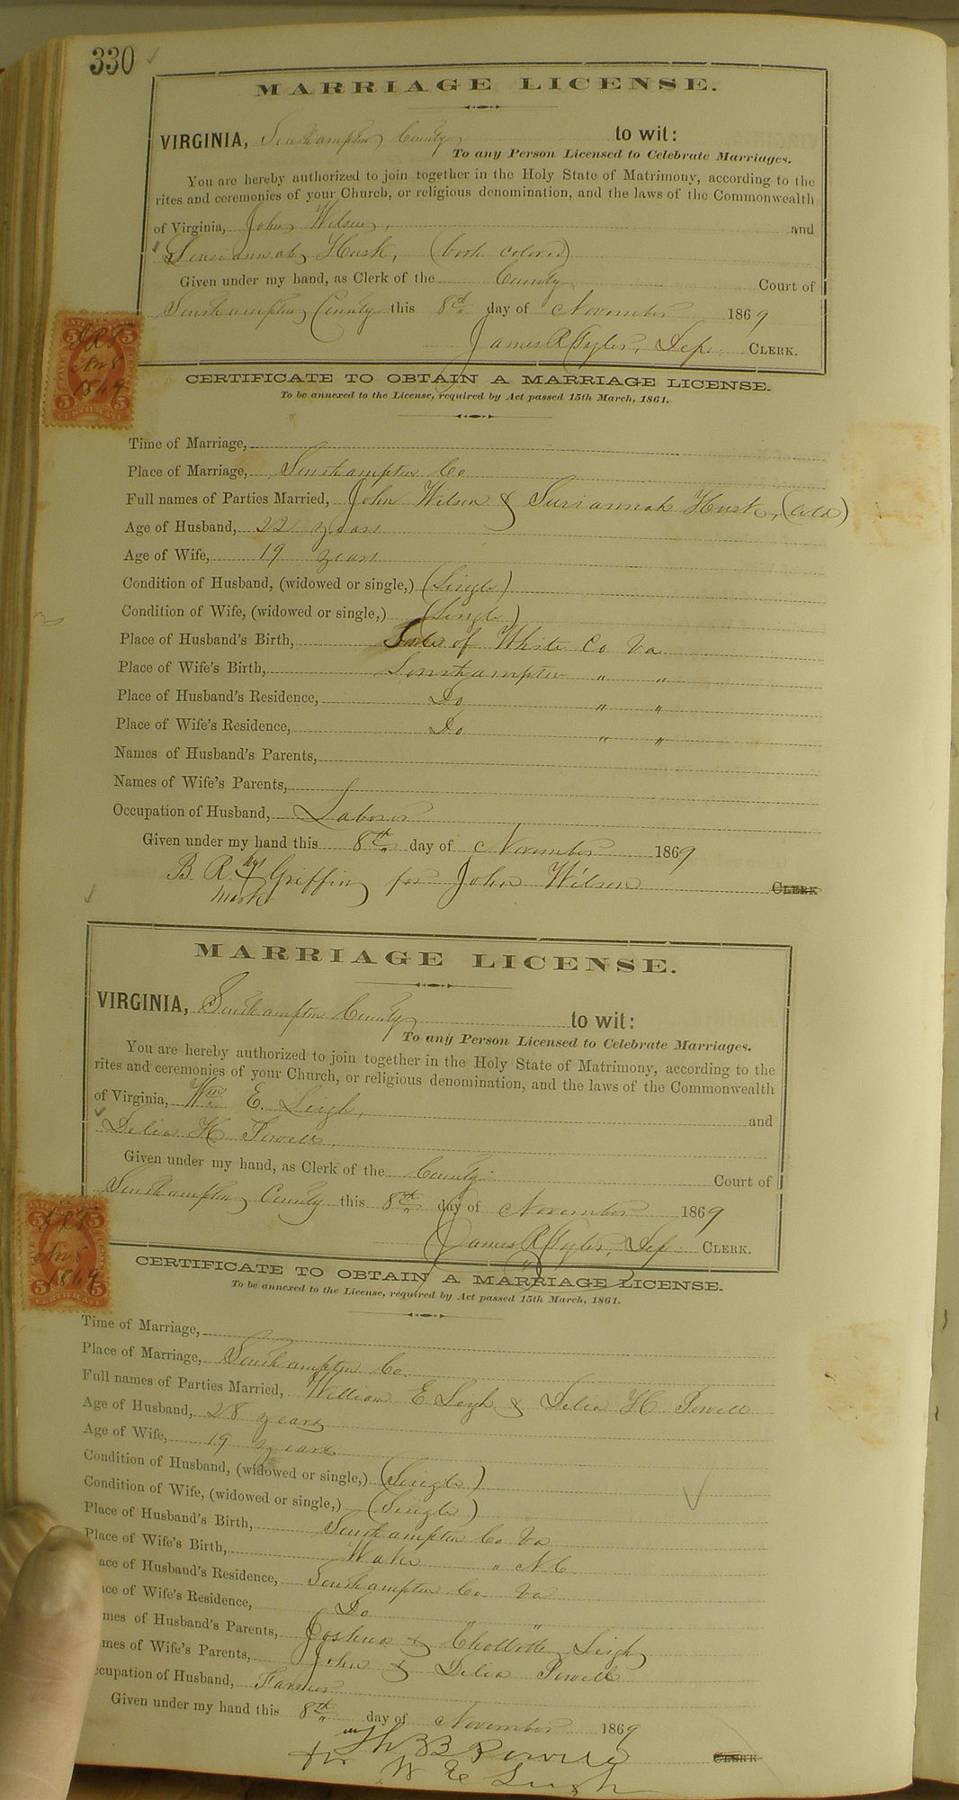 330
MARRIAGE LICENSE.
VIRGINIA, Southampton County to wit:
To any Person Licensed to Celebrate Marriages.
You are hereby authorized to join together in the Holy State of Matrimony, according to the
rites and ceremonies of your Church, or religious denomination, and the laws of the Commonwealth
of Virginia, John Wilson, and
Susiannah Husk, (both colored)
Given under my hand, as Clerk of the County Court of
Southampton County this 8th day of November 1869
James R Tyler, Dep. CLERK.
JRT
Nov 8
1869
CERTIFICATE TO OBTAIN A MARRIAGE LICENSE.
To be annexed to the License, required by Act passed 15th March, 1861.
Time of Marriage,
Place of Marriage, Southampton Co
Full names of Parties Married, John Wilson & Susiannah Husk, (Cold)
Age of Husband, 22 years
Age of Wife, 19 years
Condition of Husband, (widowed or single,) (Single)
Condition of Wife, (widowed or single,) (Single)
Place of Husband's Birth, Isle of White Co Va
Place of Wife's Birth, Southampton " "
Place of Husband's Residence, Do " "
Place of Wife's Residence, Do " "
Names of Husband's Parents,
Names of Wife's Parents,
Occupation of Husband, Laborer
Given under my hand this 8th day of November 1869
B. R. Griffin for John Wilson CLERK
mark
MARRIAGE LICENSE.
VIRGINIA, Southampton County to wit:
To any Person Licensed to Celebrate Marriages.
You are hereby authorized to join together in the Holy State of Matrimony, according to the
rites and ceremonies of your Church, or religious denomination, and the laws of the Commonwealth
of Virginia, Wm E. Leigh, and
Delia H Powell,
Given under my hand, as Clerk of the County Court of
Southampton County this 8th day of November 1869
James R Tyler, Dep CLERK.
JRT
Nov 8
1869
CERTIFICATE TO OBTAIN A MARRIAGE LICENSE.
To be annexed to the License, required by Act passed 15th March, 1861.
Time of Marriage,
Place of Marriage, Southampton Co.
Full names of Parties Married, William E Leigh & Delia H Powell
Age of Husband, 28 years
Age of Wife, 19 years
Condition of Husband, (widowed or single,) (Single)
Condition of Wife, (widowed or single,) (Single)
Place of Husband's Birth, Southampton Co Va
Place of Wife's Birth, Wake " N.C.
ace of Husband's Residence, Southampton Co Va
ce of Wife's Residence, Do "
mes of Husband's Parents, Joshua & Leigh
mes of Wife's Parents, John & Delia Powell
ccupation of Husband, Farmer
Given under my hand this 8th day of November 1869
Powell CLERK
for W E Leigh